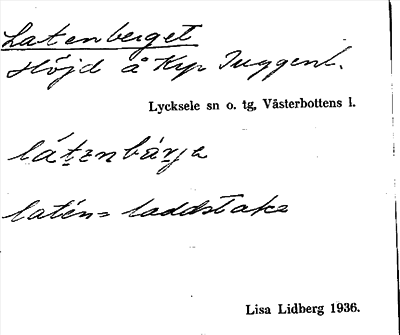 Latenberget
Höjd å Krp Tuggenl.
Lycksele sn o. tg, Västerbottens l.
látenbárja
latén= laddstake
Lisa Lidberg 1936.